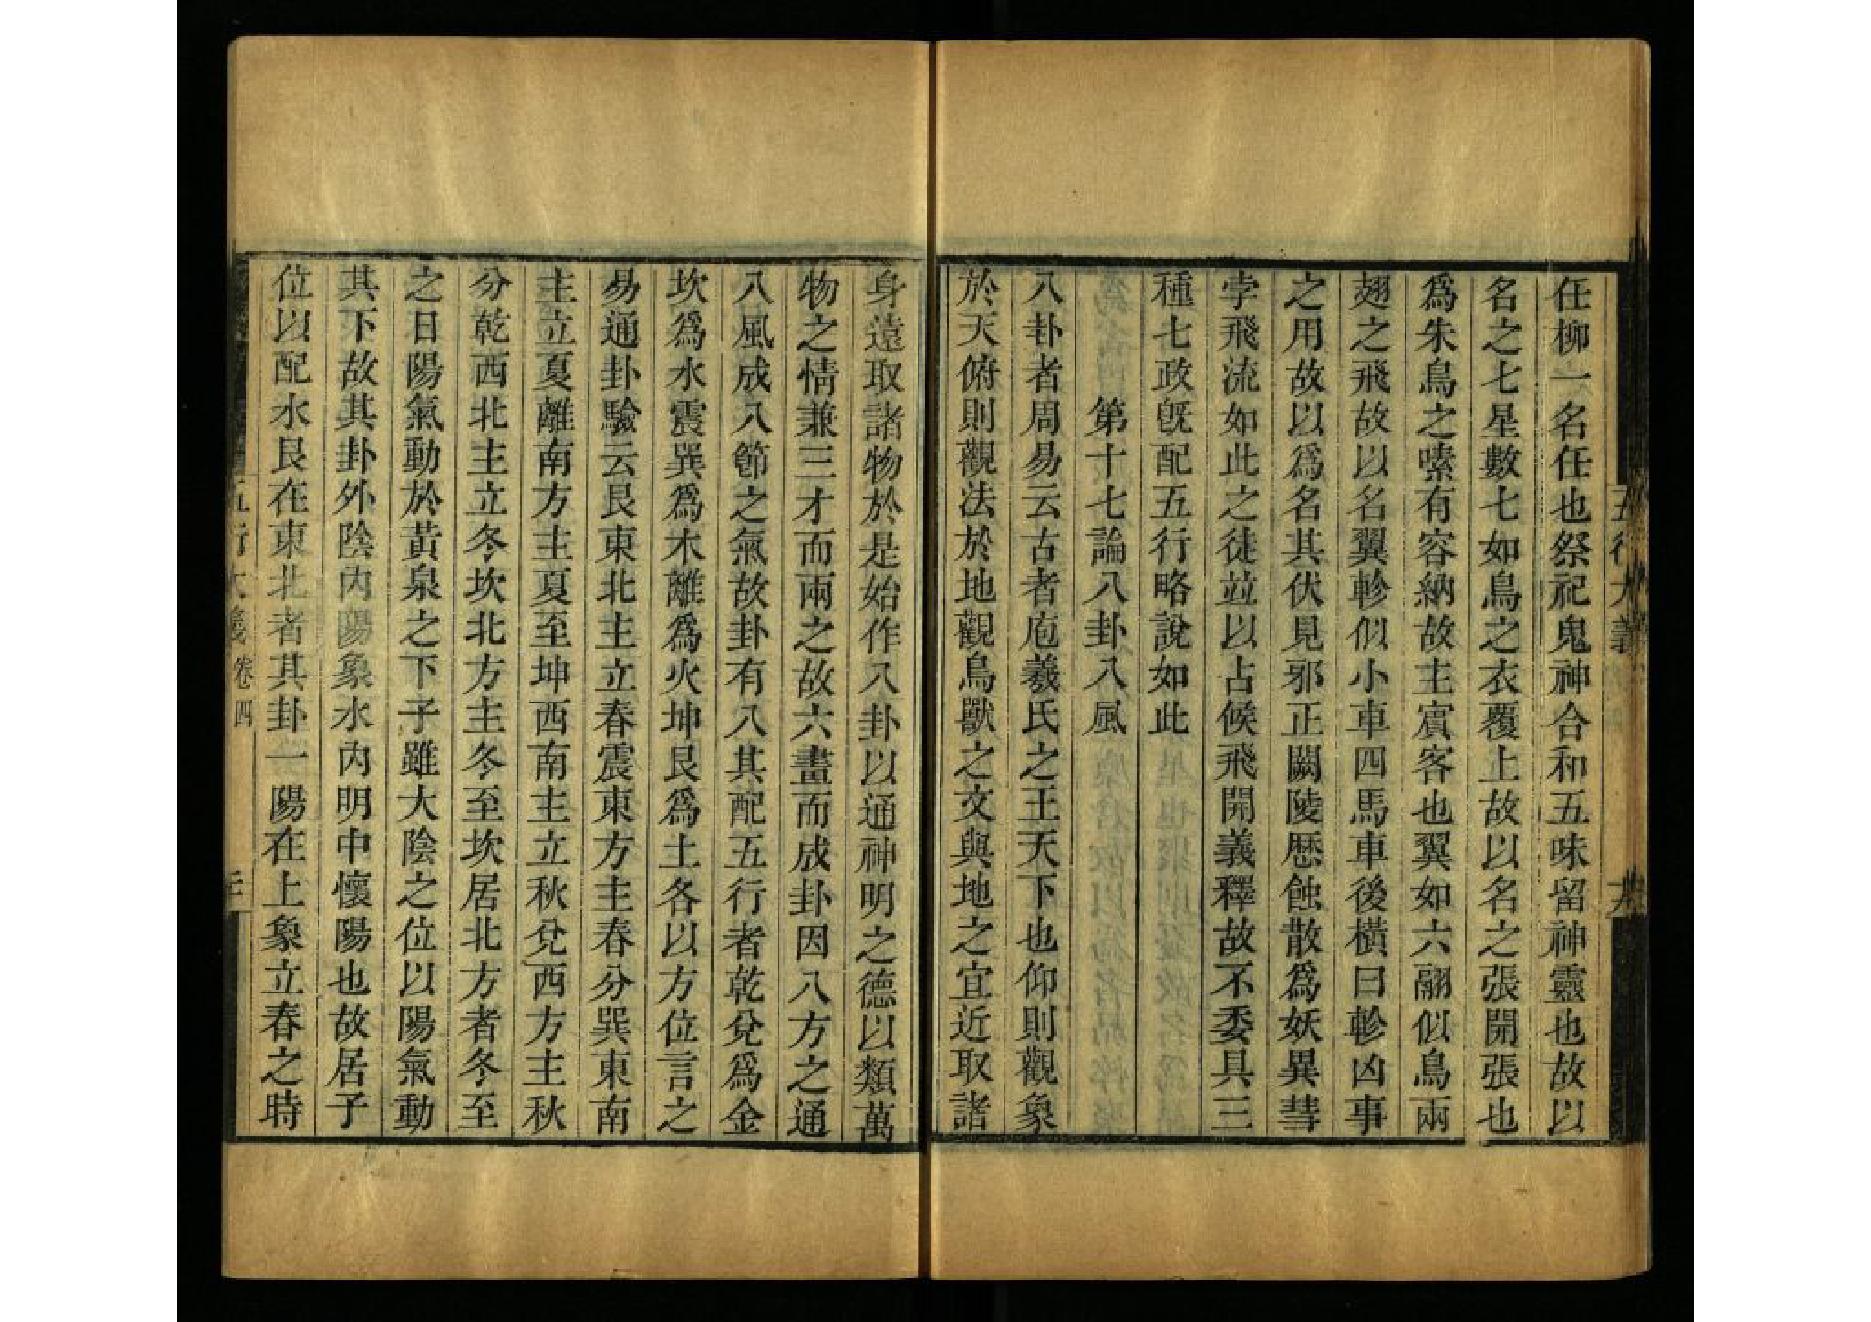 任柳一名任也祭祀鬼神合和五味留神靈也故以
名之七星數七如鳥之衣覆上故以名之張開張也
爲朱鳥之嗉有容納故主賓客也翼如六翮似鳥兩
翅之飛故以名翼軫似小車四馬車後橫曰軫凶事
之用故以爲名其伏見邪正闕陵歷蝕散爲妖異彗
孛飛流如此之徒竝以占候飛開義釋故不委具三
種七政旣配五行略說如此
第十七論八卦八風
八卦者周易云古者庖羲氏之王天下也仰則觀象
於天俯則觀法於地觀鳥獸之文與地之宜近取諸
身遠取諸物於是始作八卦以通神明之德以類萬
物之情兼三才而兩之故六畫而成卦因八方之通
八風成八節之氣故卦有八其配五行者乾兌爲金
坎爲水震巽爲木離爲火坤艮爲土各以方位言之
易通卦驗云艮東北主立春震東方主春分巽東南
主立夏離南方主夏至坤西南主立秋兌西方主秋
分乾西北主立冬坎北方主冬至坎居北方者冬至
之日陽氣動於黃泉之下子雖大陰之位以陽氣動
其下故其卦外陰內陽象水內明中懷陽也故居子
位以配水艮在東北者其卦一陽在上象立春之時
五行大義 卷四